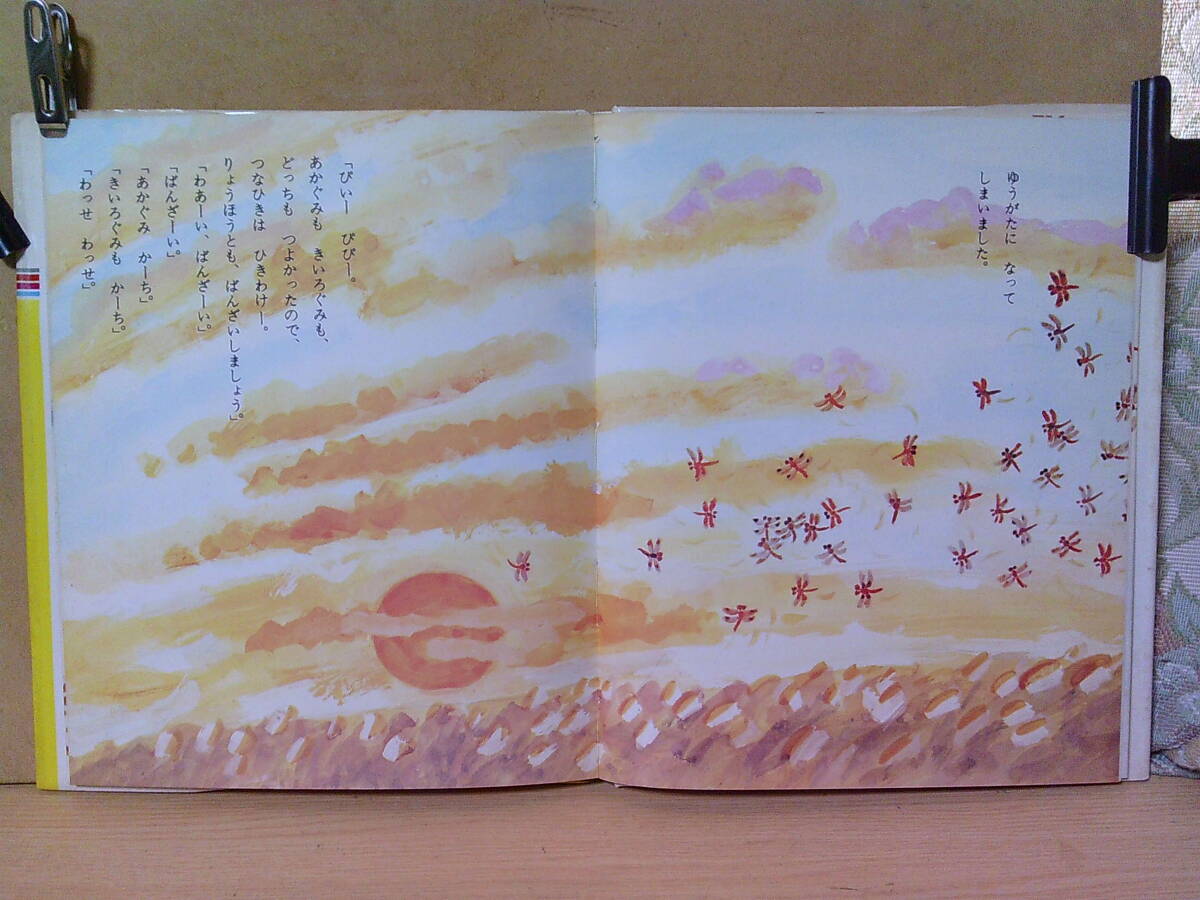 ゆうがたに　なって
しまいました。
「ぴいー　ぴぴー。
あかぐみも　きいろぐみも、
どっちも　つよかったので、
つなひきは　ひきわけー。
りょうほうとも、ばんざいしましょう」
「わあーい、ばんざーい。」
「ばんざーい。」
「あかぐみ　かーち。」
「きいろぐみも　かーち。」
「わっせ　わっせ。」